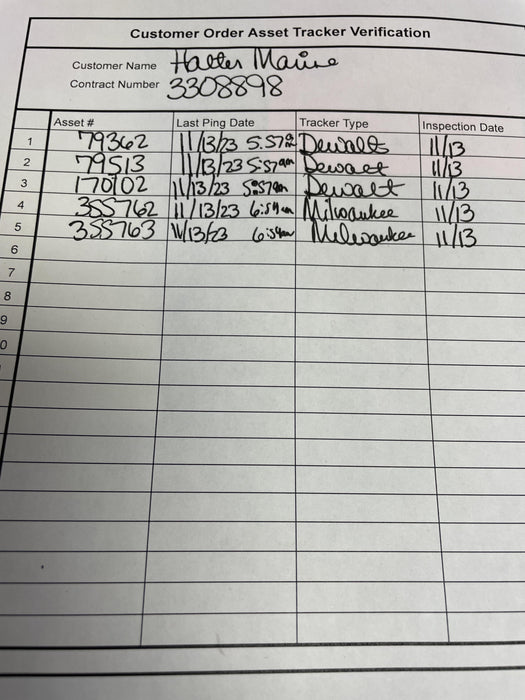 Customer Order Asset Tracker Verification
Customer Name Halter Marine
Contract Number 3308898
Asset # Last Ping Date Tracker Type Inspection Date
1 79362 11/13/23 5:57am Dewalt 11/13
2 79513 11/13/23 5:57am Dewalt 11/13
3 170102 11/13/23 5:57am Dewalt 11/13
4 355762 11/13/23 6:54am Milwaukee 11/13
5 355763 11/13/23 6:54am Milwaukee 11/13
6
7
8
9
0